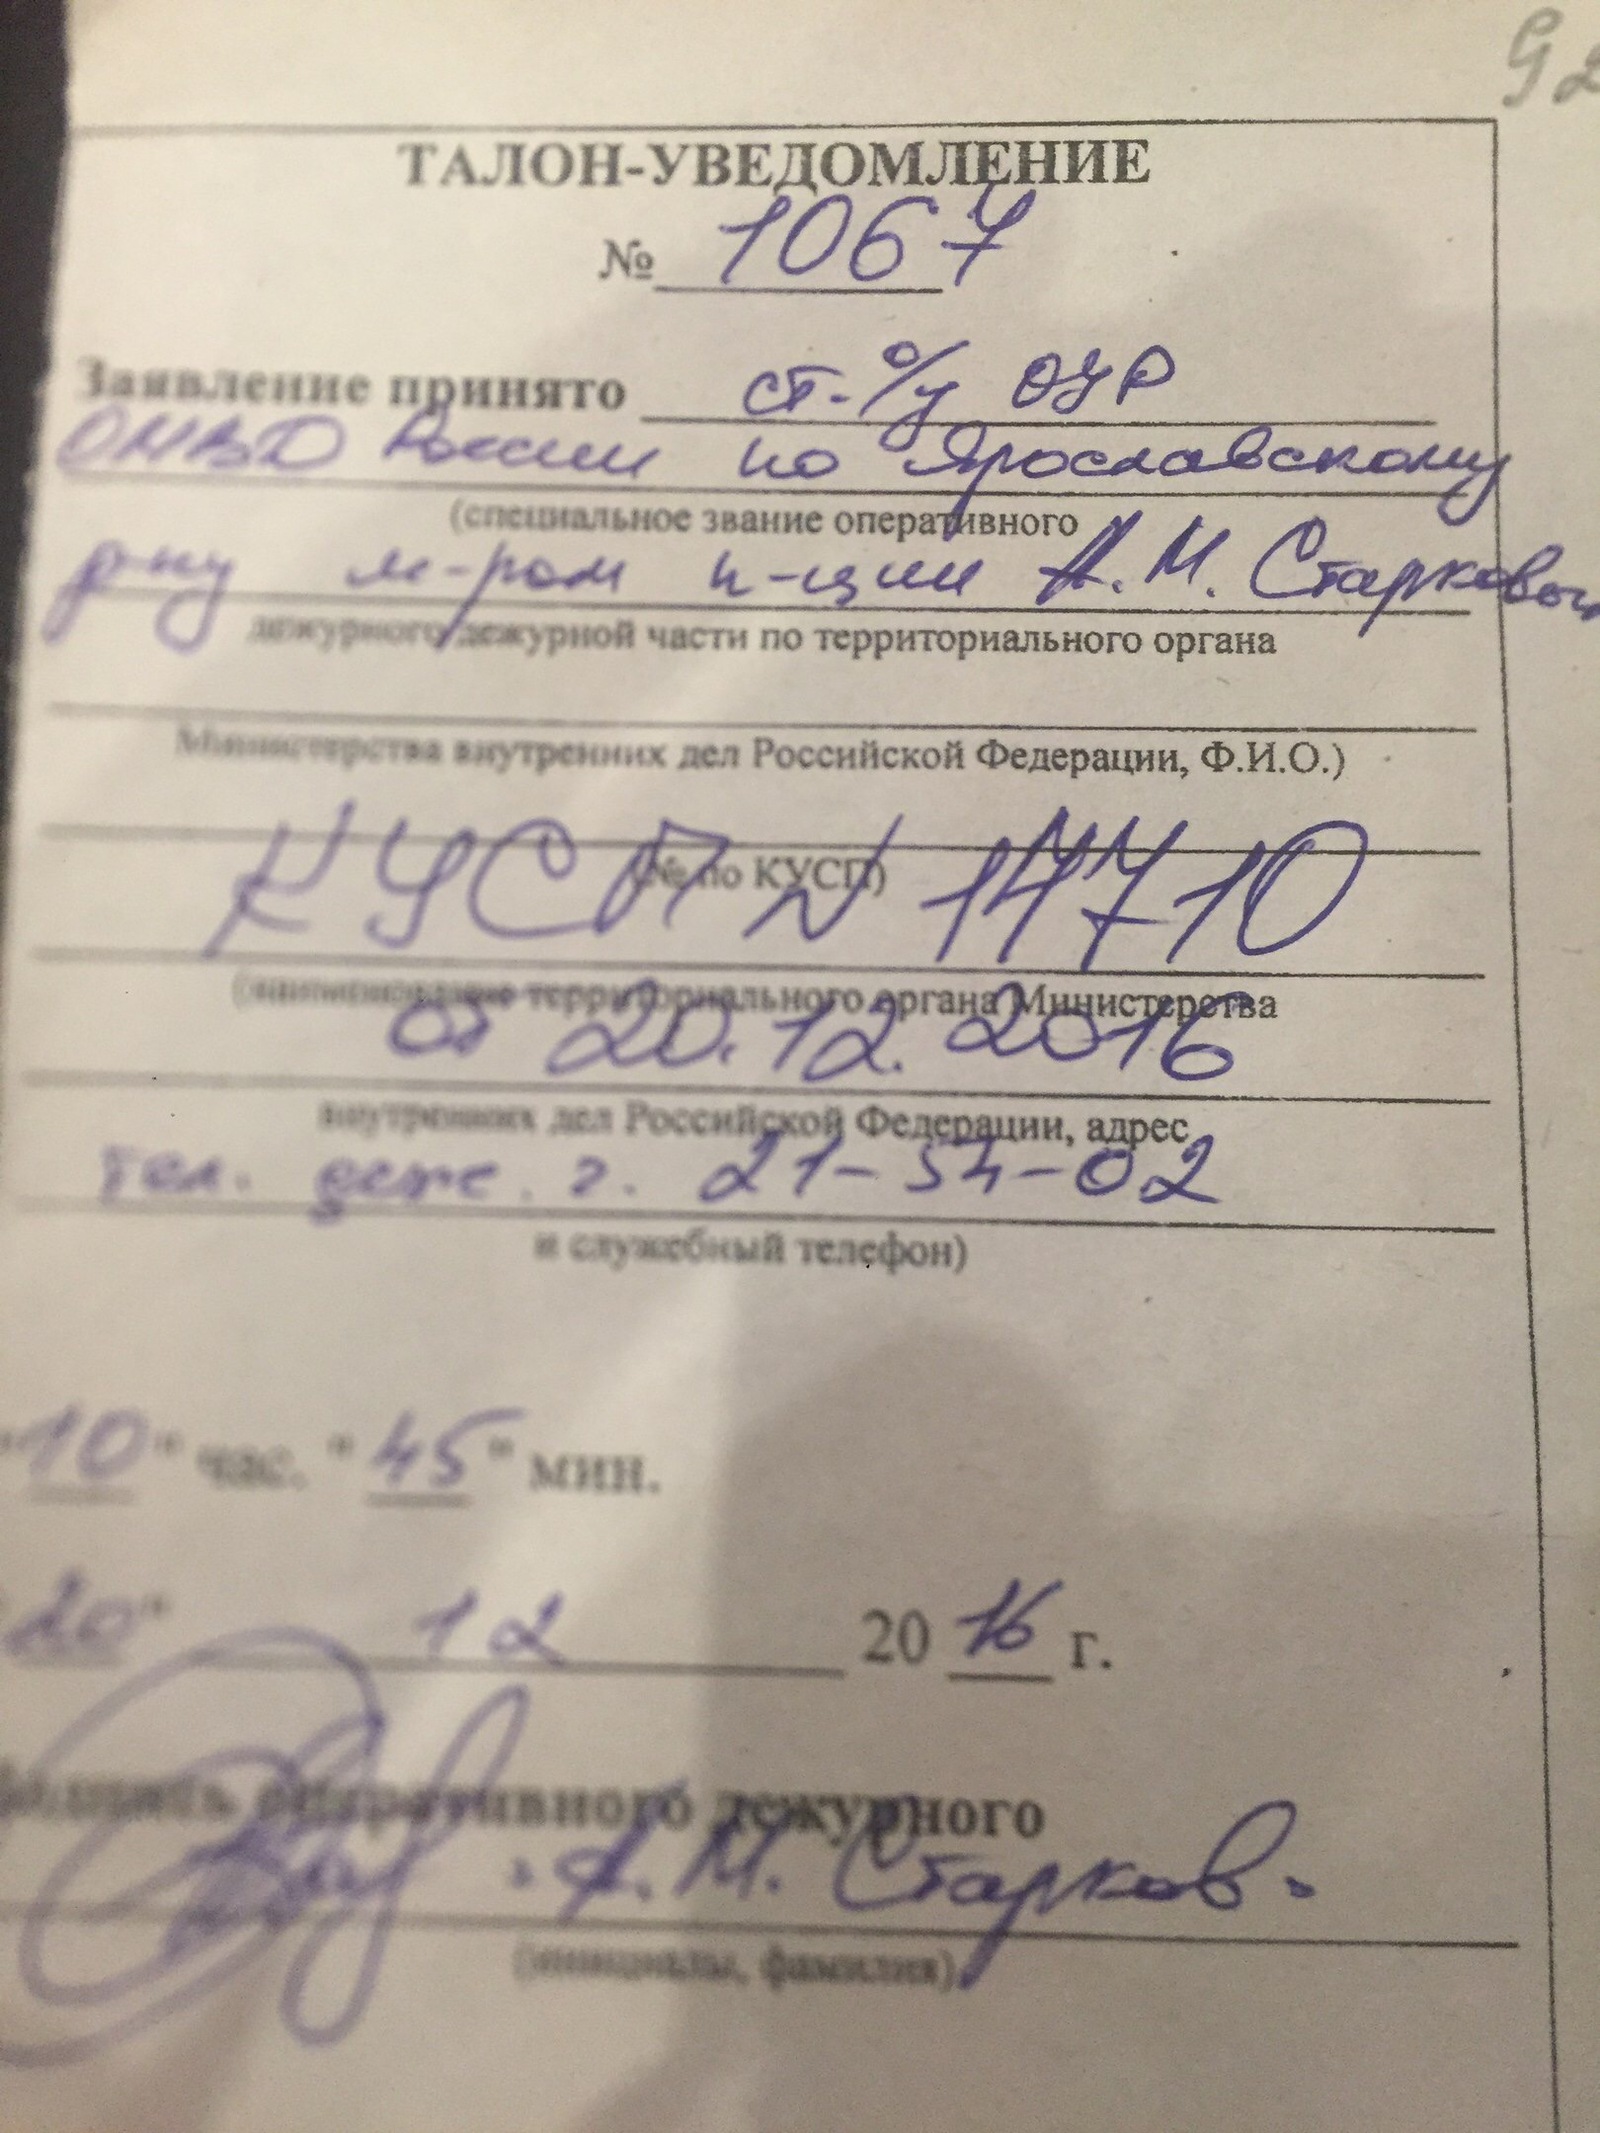 92
ТАЛОН-УВЕДОМЛЕНИЕ
№ 1067
Заявление принято ст. о/у ОУР
ОМВД России по Ярославскому
(специальное звание оперативного
р-ну м-ром п-ции А.М. Старковым
дежурного дежурной части по территориального органа
Министерства внутренних дел Российской Федерации, Ф.И.О.)
КУСП N 14710
(№ по КУСП)
(наименование территориального органа Министерства
от 20.12.2016
внутренних дел Российской Федерации, адрес
тел. деж. ч. 21-54-02
и служебный телефон)
"10" час. "45" мин.
"20" 12 2016 г.
Подпись оперативного дежурного
А.М. Старков
(инициалы, фамилия)